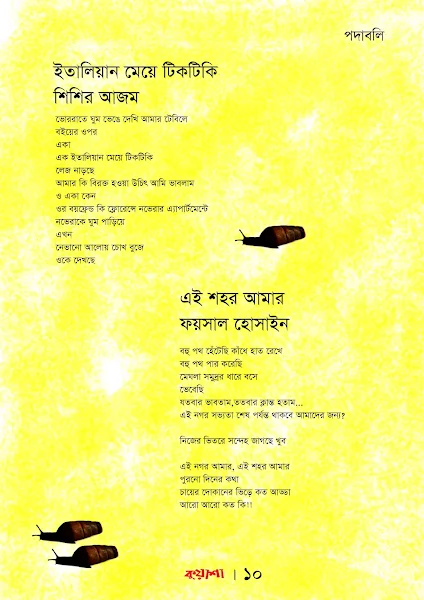 পদাবলি
ইতালিয়ান মেয়ে টিকটিকি
শিশির আজম
ভোররাতে ঘুম ভেঙে দেখি আমার টেবিলে
বইয়ের ওপর
একা
এক ইতালিয়ান মেয়ে টিকটিকি
লেজ নাড়ছে
আমার কি বিরক্ত হওয়া উচিৎ আমি ভাবলাম
ও একা কেন
ওর বয়ফ্রেন্ড কি ফ্লোরেন্সে নভেরার এ্যাপার্টমেন্টে
নভেরাকে ঘুম পাড়িয়ে
এখন
নেভানো আলোয় চোখ বুজে
ওকে দেখছে
এই শহর আমার
ফয়সাল হোসাইন
বহু পথ হেঁটেছি কাঁধে হাত রেখে
বহু পথ পার করেছি
মেঘলা সমুদ্রর ধারে বসে
ভেবেছি
যতবার ভাবতাম,ততবার ক্লান্ত হতাম...
এই নগর সভ্যতা শেষ পর্যন্ত থাকবে আমাদের জন্য?
নিজের ভিতরে সন্দেহ জাগছে খুব
এই নগর আমার, এই শহর আমার
পুরনো দিনের কথা
চায়ের দোকানের ভিড়ে কত আড্ডা
আরো আরো কত কি!!
কুয়াশা | ১০